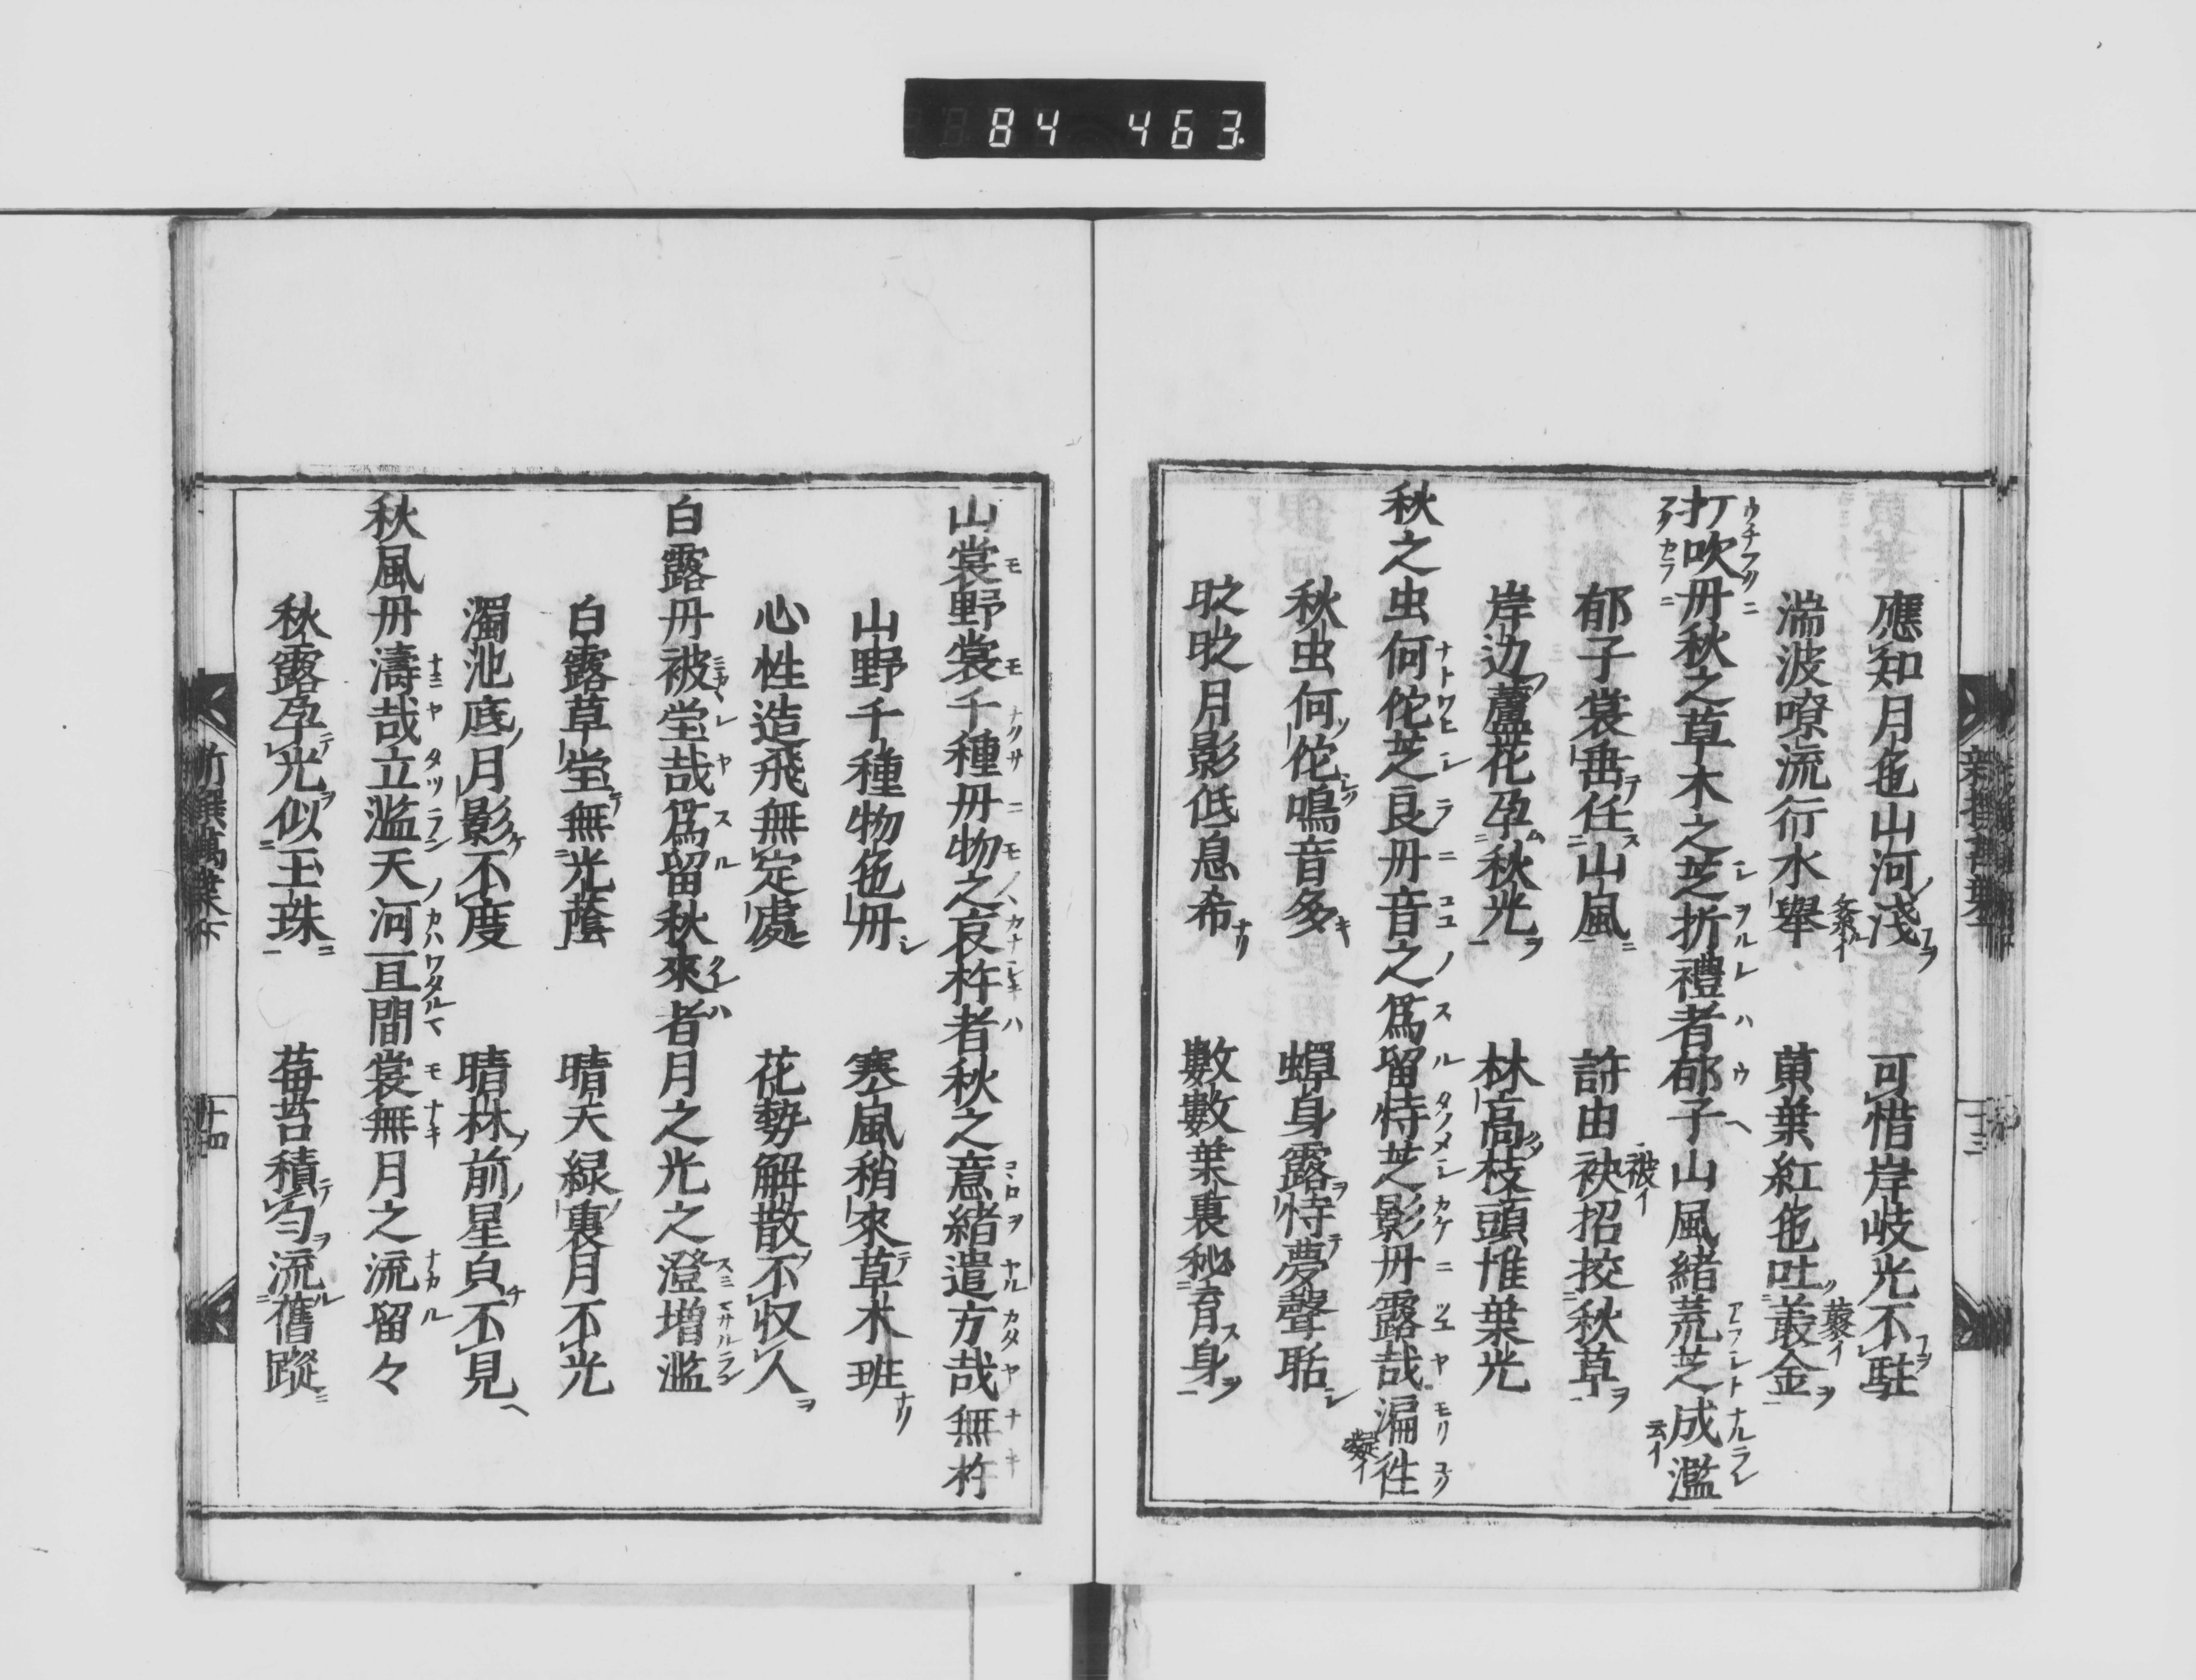 84 463
應知月色山河淺 可惜岸岐光不駐
湍波嘹流行水舉 菓葉紅色吐叢金
打吹丹秋之草木之芝折禮者郁子山風緒荒芝成濫
郁子裳垂任山風 許由袂招挍秋草
岸边蘆花孕秋光 林高枝頭惟葉光
秋之虫何佗芝良丹音之爲留恃芝影丹露哉漏徃
秋虫何佗鳴音多 蟬身露恃夢聲聒
晈晈月影低息希 數數葉裏秘育身
新撰萬葉
十三
山裳野裳千種丹物之哀杵者秋之意緒遣方哉無杵
山野千種物色丹 寒風稍來草木斑
心性造飛無定處 花勢解散不収人
白露丹被瑩哉爲留秋來者月之光之澄增濫
白露草瑩無光蔭 晴天緑裏月不光
濁池底月影不度 晴林前星貞不見
秋風丹濤哉立濫天河亘間裳無月之流留々
秋露孕光似玉珠 莓苔積匂流舊蹤
新撰萬葉下
十四